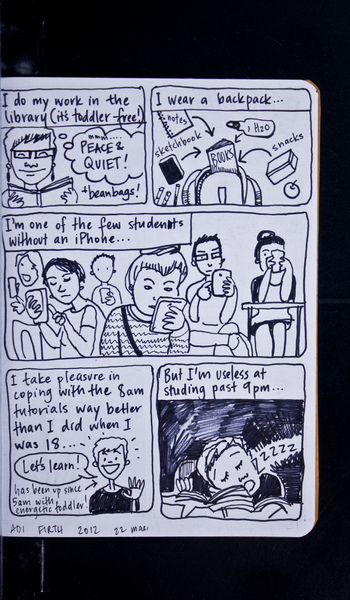 I do my work in the
library (it's toddler-free!)
mmm....
PEACE &
QUIET!
+beanbags!
I wear a backpack...
notes
H2O
sketchbook
snacks
BOOKS
I'm one of the few students
without an iPhone...
I take pleasure in
coping with the 8am
tutorials way better
than I did when I
was 18....
Let's learn!
has been up since
5am with
energetic toddler!
But I'm useless at
studing past 9pm...
ZZZZ
ADI FIRTH 2012 22 MAR